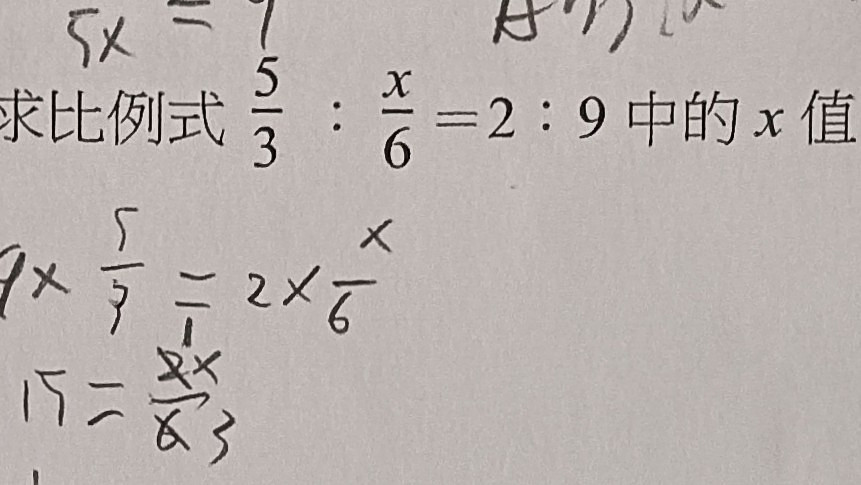 5x = 9
求比例式 5/3 : x/6 = 2 : 9 中的 x 值
9 × 5/3 = 2 × x/6
15 = 2x/6 1 3